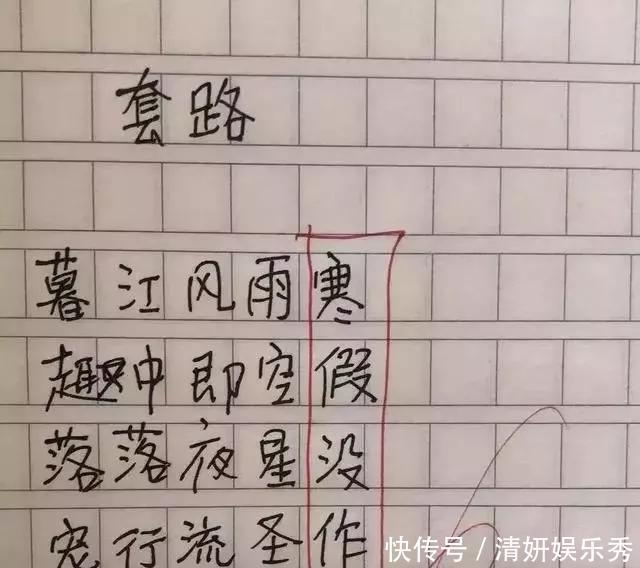 套路
暮江风雨寒
趣中即空假
落落夜星没
宠行流圣作
快传号/清妍娱乐秀